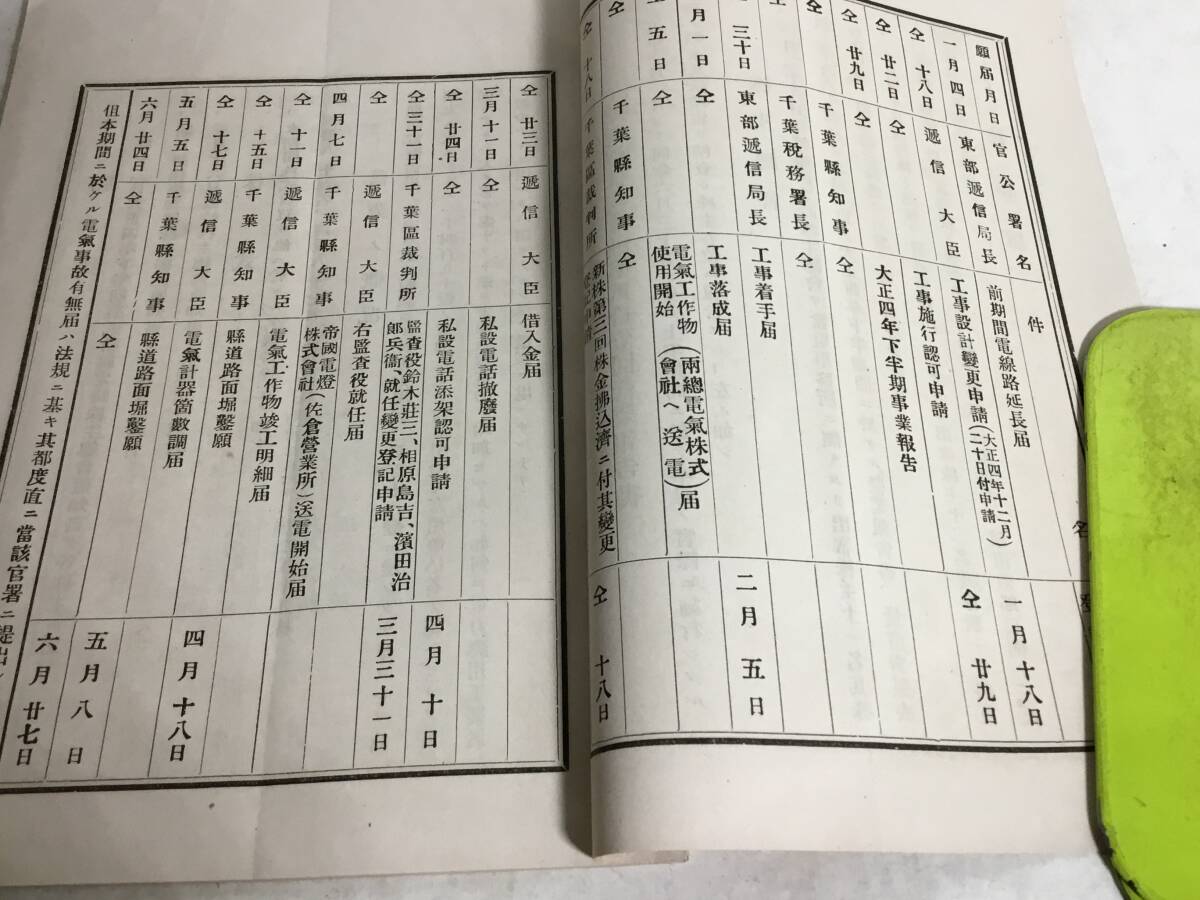 願届月日 官公署名 件名
一月四日 東部遞信局長 前期間電線路延長届 一月十八日
仝十八日 遞信大臣 工事設計變更申請(大正四年十二月二十日付申請) 仝廿九日
仝廿二日 仝 工事施行認可申請
仝廿九日 仝 大正四年下半期事業報告
仝 千葉縣知事 仝
仝 千葉稅務署長 仝
三十日 東部遞信局長 工事着手届 二月五日
月一日 仝 工事落成届
五日 仝 電氣工作物(兩總電氣株式會社ヘ送電)届使用開始
仝 千葉縣知事 仝
仝十八日 千葉區裁判所 新株第二回株金拂込濟ニ付其變更 仝十八日
仝廿三日 遞信大臣 借入金届
三月十一日 仝 私設電話撤廢届
仝廿四日 仝 私設電話添架認可申請 四月十日
仝三十一日 千葉區裁判所 監査役鈴木莊三、相原島吉、濱田治郎兵衞、就任變更登記申請 三月三十一日
仝 遞信大臣 右監査役就任届
四月七日 千葉縣知事 帝國電燈株式會社(佐倉營業所)送電開始届
仝十一日 遞信大臣 電氣工作物竣工明細届
仝十五日 千葉縣知事 縣道路面堀鑿願
仝十七日 遞信大臣 電氣計器箇數調届 四月十八日
五月五日 千葉縣知事 縣道路面堀鑿願
六月廿四日 仝 仝 五月八日
六月廿七日
但本期間ニ於ケル電氣事故有無届ハ法規ニ基キ其都度直ニ當該官署ニ提出